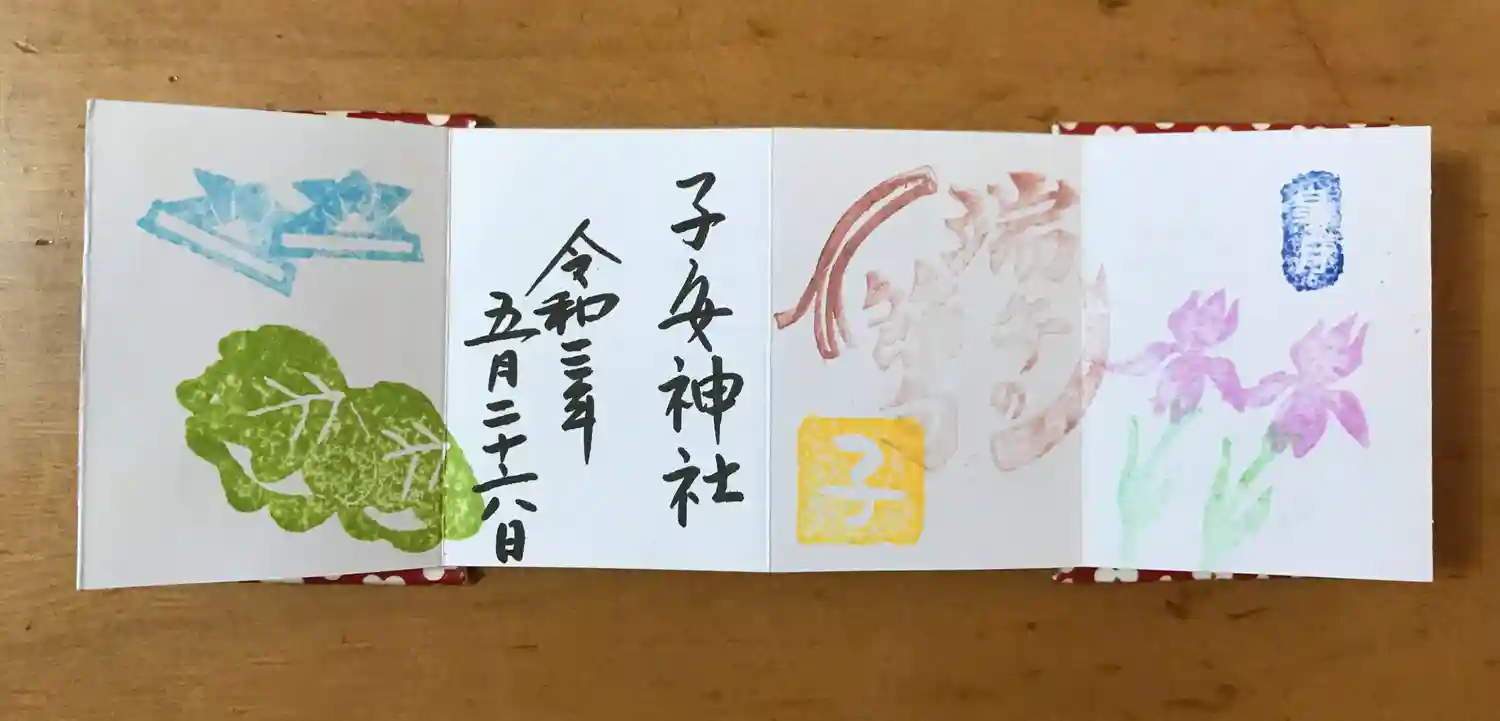 端午の
節句
子
子安神社
令和三年
五月二十六日